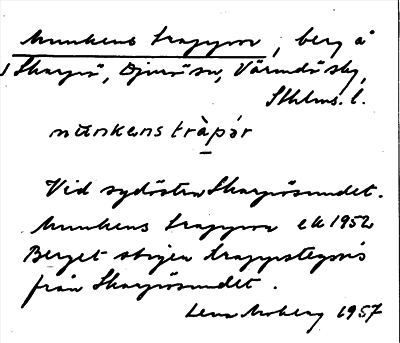 Munkens trappor, berg å
Skarpö, Djurö sn, Värmdö skg,
Sthlms. l.
munkenstràpər
Vid sydöstra Skarpösundet.
Munkens trappor ek 1952
Berget stiger trappstegsvis
från Skarpösundet.
Lena Moberg 1957